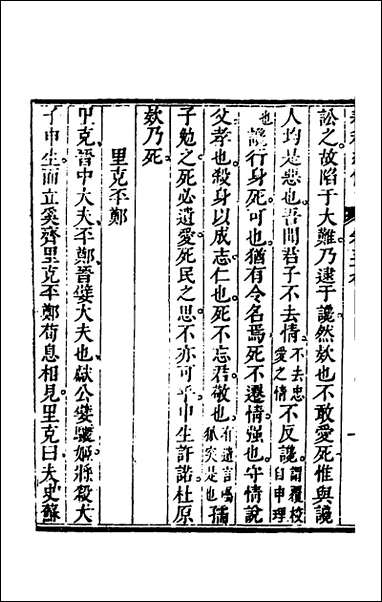 訟之故陷于大難乃逮于讒然欸也不敢愛死惟與讒
人均是惡也吾聞君子不去情不去忠愛之情不反讒謂覆校自申理
也讒行身死可也猶有令名焉死不遷情强也守情說
父孝也殺身以成志仁也死不忘君敬也有遺言狐突是也孺
子勉之死必遺愛死民之思不亦可乎申生許諾杜原
欸乃死
里克㔻鄭
里克晉中大夫㔻鄭晉嬖大夫也獻公嬖驪姬將殺大
子申生而立奚齊里克㔻鄭荀息相見里克曰夫史蘇